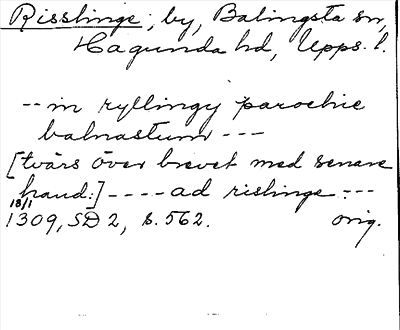 Risslinge, by, Balingsta sn,
Hagunda hd, Upps. l.
-- in ryllingy parochie
balnastum ---
[tvärs över brevet med senare
hand:] ---- ad rislinge ---
18/1
1309, SD 2, s. 562. orig.